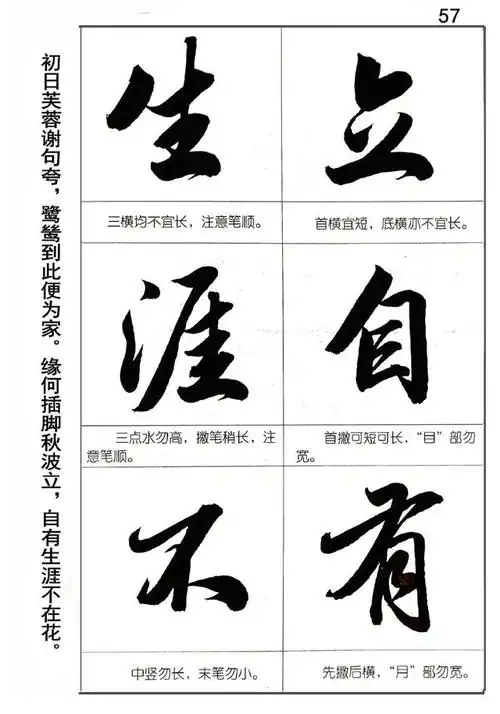 57
初日芙蓉谢句夸，鹭鸶到此便为家。缘何插脚秋波立，自有生涯不在花。
立
首横宜短，底横亦不宜长。
自
首撇可短可长，“目”部勿
宽。
有
先撇后横，“月”部勿宽。
生
三横均不宜长，注意笔顺。
涯
三点水勿高，撇笔稍长，注
意笔顺。
不
中竖勿长，末笔勿小。